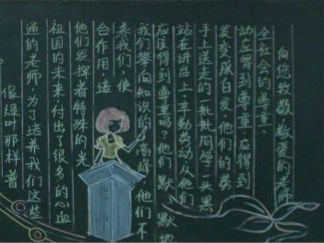 像绿叶那样普
通的老师,为了培养我们这些
祖国的未来,付出了很多的心血
他们发挥着特殊的光
合作用,造
我们,使
我们攀向知识的高峰他们不
应该得到尊重吗?他们默默地
站在讲台上辛勤劳动从他们
手上送走的一批同学一头黑
发变成白发。他们的劳
动应得到尊重。应得到
全社会的尊重。
向您致敬敬爱的老师